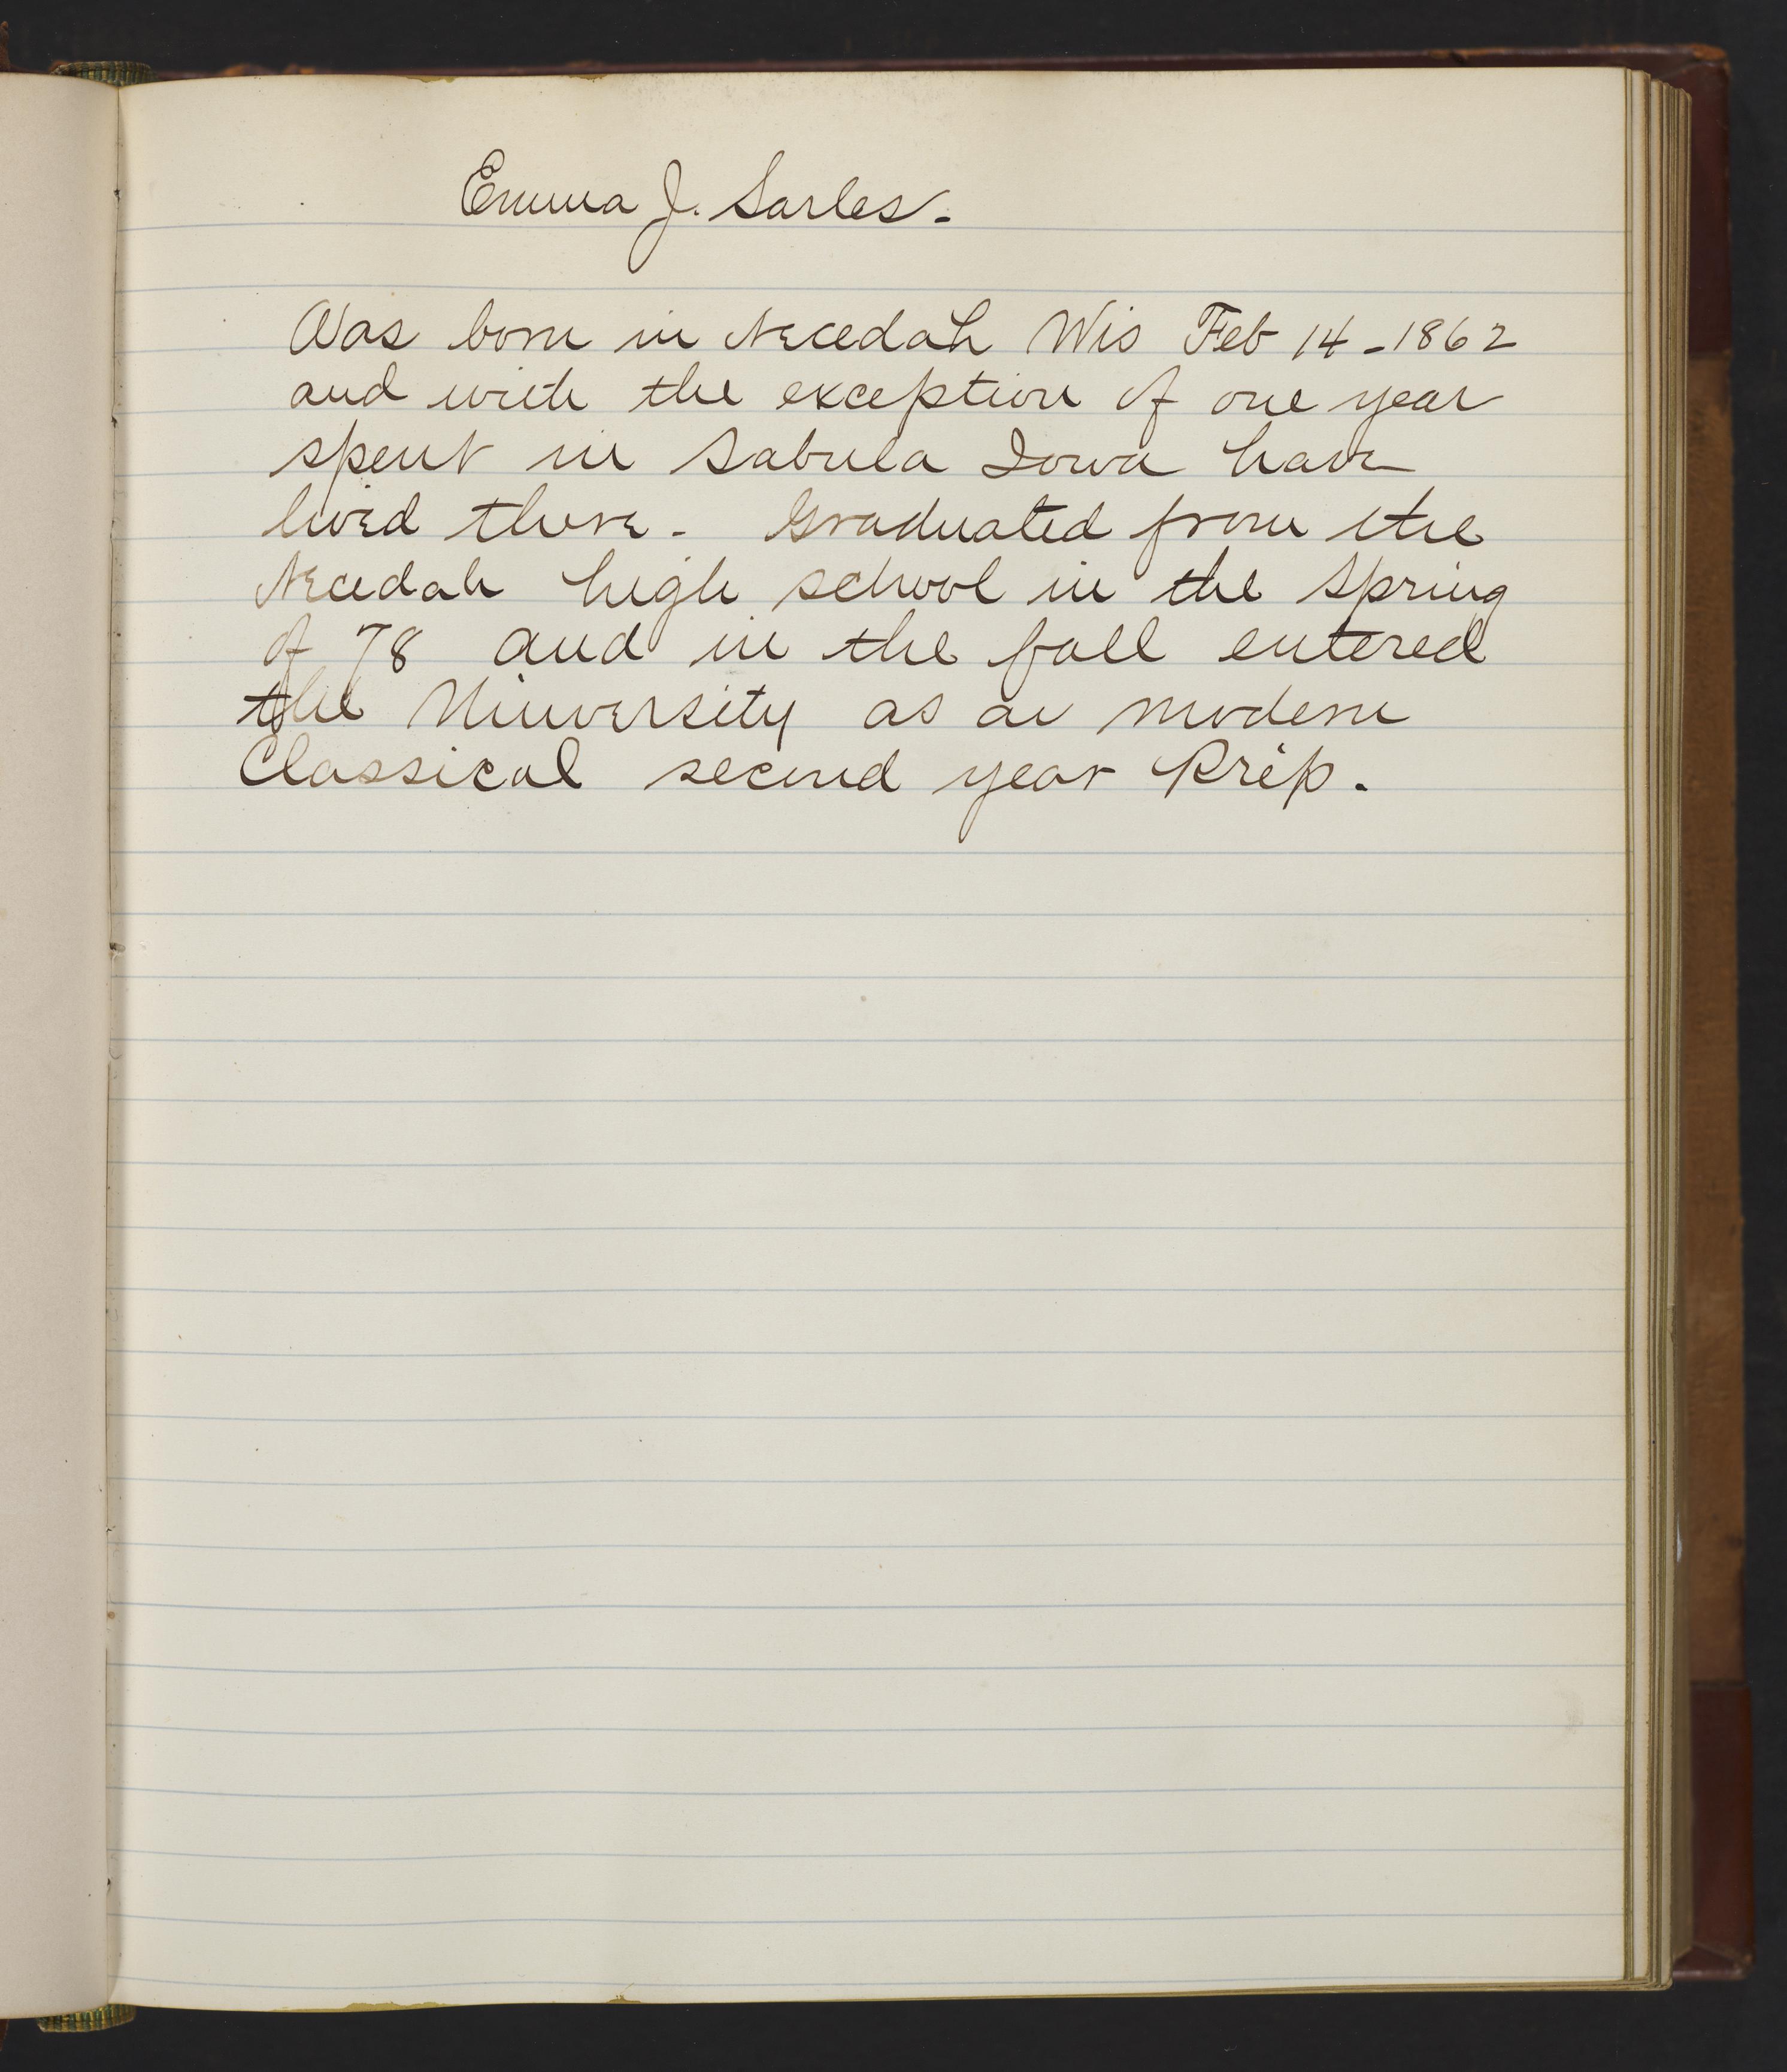 Emma J. Sarles.
Was born in Necedah Wis Feb 14-1862
and with the exception of one year
spent in Sabula Iowa have
lived there - Graduated from the
Necedah high school in the spring
of 78 and in the fall entered
the University as a modern
Classical second year Prep.